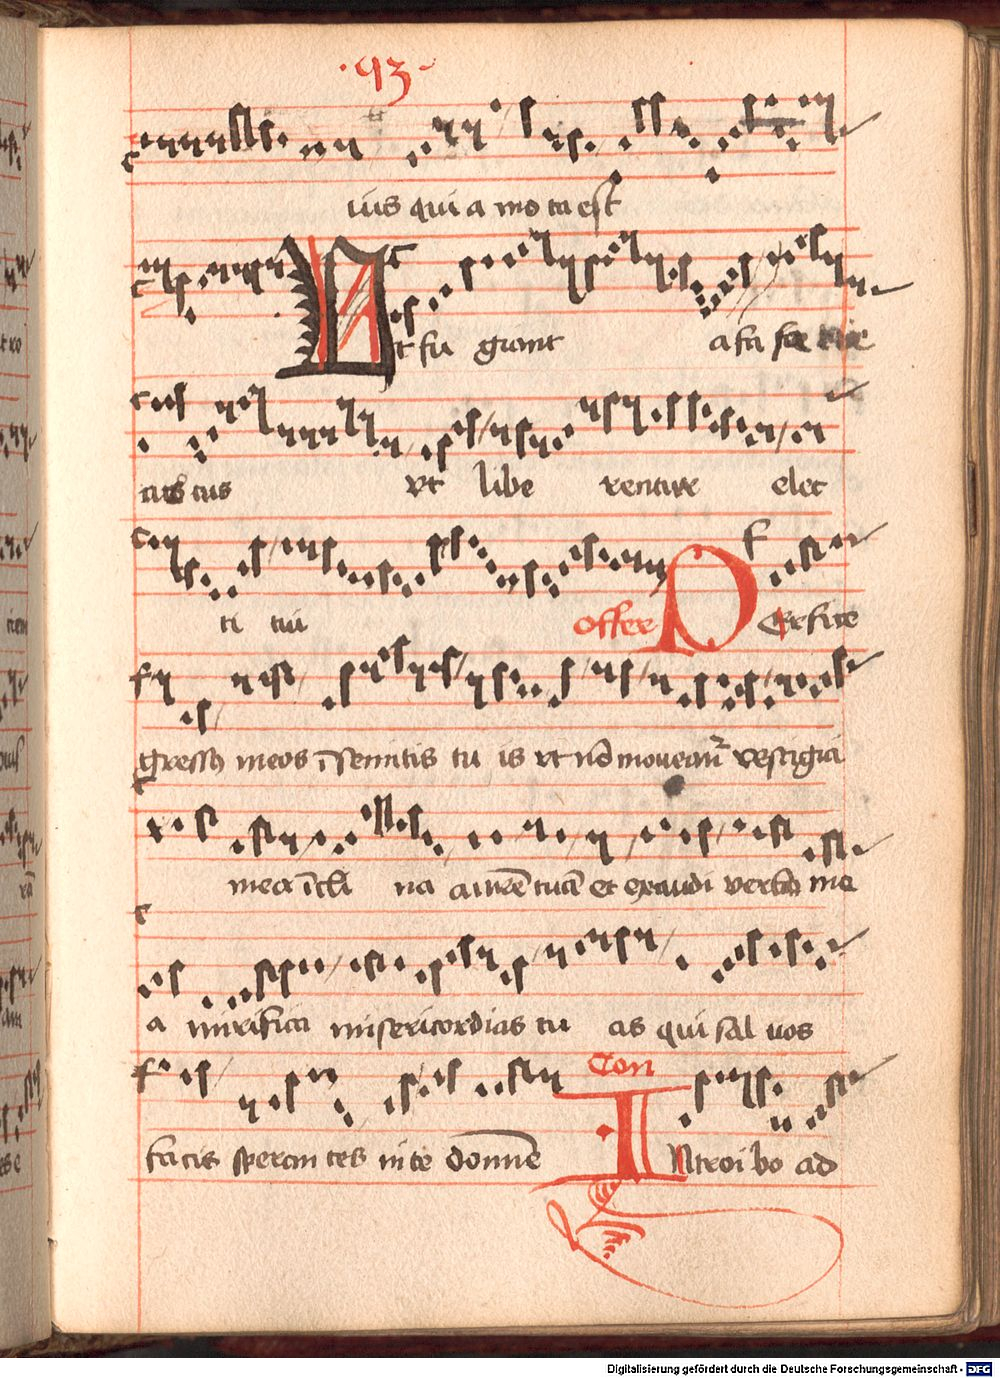 ·93·
ius qui a mo ta est
Ut fu giant a fa fa cie
cus tus ut libe rentur elec
ti tui offer Perfice
gressus meos ī semitis tu is ut nō moueant᷑ vestigia
mea īcli na aurē tuā et exaudi verba me
a mirifica misericordias tu as qui sal uos
facis speran tes in te domine Con Introi bo ad
Digitalisierung gefördert durch die Deutsche Forschungsgemeinschaft - DFG